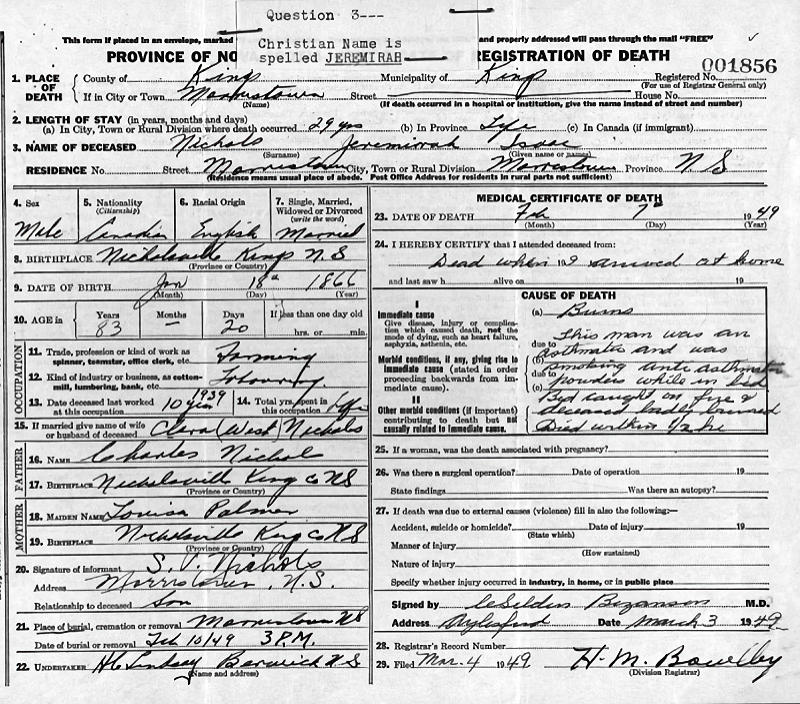 Question 3---
This form if placed in an envelope, marked and properly addressed will pass through the mail "FREE"
Christian Name is
spelled JEREMIRAH
PROVINCE OF NO REGISTRATION OF DEATH
001856
1. PLACE OF DEATH County of Kings Municipality of Kings Registered No.
(For use of Registrar General only)
If in City or Town Morristown Street House No.
(Name) (If death occurred in a hospital or institution, give the name instead of street and number)
2. LENGTH OF STAY (in years, months and days)
(a) In City, Town or Rural Division where death occurred 29 yrs (b) In Province Life (c) In Canada (if immigrant)
3. NAME OF DECEASED Nichols Jeremirah Isaac
(Surname) (Given name or names)
RESIDENCE No. Street Morristown City, Town or Rural Division Morristown Province N.S
(Residence means usual place of abode. Post Office Address for residents in rural parts not sufficient)
4. Sex 5. Nationality (Citizenship) 6. Racial Origin 7. Single, Married, Widowed or Divorced (write the word)
Male Canadian English Married
8. BIRTHPLACE Nicholsville Kings N S
(Province or Country)
9. DATE OF BIRTH Jan 18th 1866
(Month) (Day) (Year)
10. AGE in Years Months Days If less than one day old
83 - 20 hrs. or min.
OCCUPATION
11. Trade, profession or kind of work as spinner, teamster, office clerk, etc. Farming
12. Kind of industry or business, as cotton-mill, lumbering, bank, etc.
13. Date deceased last worked at this occupation 1939 10 years 14. Total yrs. spent in this occupation Life
15. If married give name of wife or husband of deceased Clara (West) Nichols
FATHER
16. NAME Charles Nichols
17. BIRTHPLACE Nicholsville King Co NS
(Province or Country)
MOTHER
18. MAIDEN NAME Louisa Palmer
19. BIRTHPLACE Nicholsville King Co N S
(Province or Country)
20. Signature of informant Nichols
Address Morristown, N.S.
Relationship to deceased Son
21. Place of burial, cremation or removal Morristown NS
Date of burial or removal Feb 10/49 3 P.M.
22. UNDERTAKER H C Lindsay Berwick N S
(Name and address)
MEDICAL CERTIFICATE OF DEATH
23. DATE OF DEATH Feb 7th 1949
(Month) (Day) (Year)
24. I HEREBY CERTIFY that I attended deceased from:
Dead when I arrived at home
and last saw h alive on 19
CAUSE OF DEATH
I
Immediate cause
Give disease, injury or complication which caused death, not the mode of dying, such as heart failure, asphyxia, asthenia, etc.
(a) Burns
due to
Morbid conditions, if any, giving rise to immediate cause (stated in order proceeding backwards from immediate cause).
(b)
due to
(c)
This man was an
asthmatic and was
smoking anti asthmatic
powders while in bed
Bed caught on fire &
deceased badly burned
Died within 1/2 hr
II
Other morbid conditions (if important) contributing to death but not causally related to immediate cause.
25. If a woman, was the death associated with pregnancy?
26. Was there a surgical operation? Date of operation 19
State findings Was there an autopsy?
27. If death was due to external causes (violence) fill in also the following:—
Accident, suicide or homicide? Date of injury 19
(State which)
Manner of injury
(How sustained)
Nature of injury
Specify whether injury occurred in industry, in home, or in public place
Signed by C Selden Bezanson M.D.
Address Aylesford Date March 3 1949
28. Registrar's Record Number
29. Filed Mar. 4 1949 H. M. Bowlby
(Division Registrar)